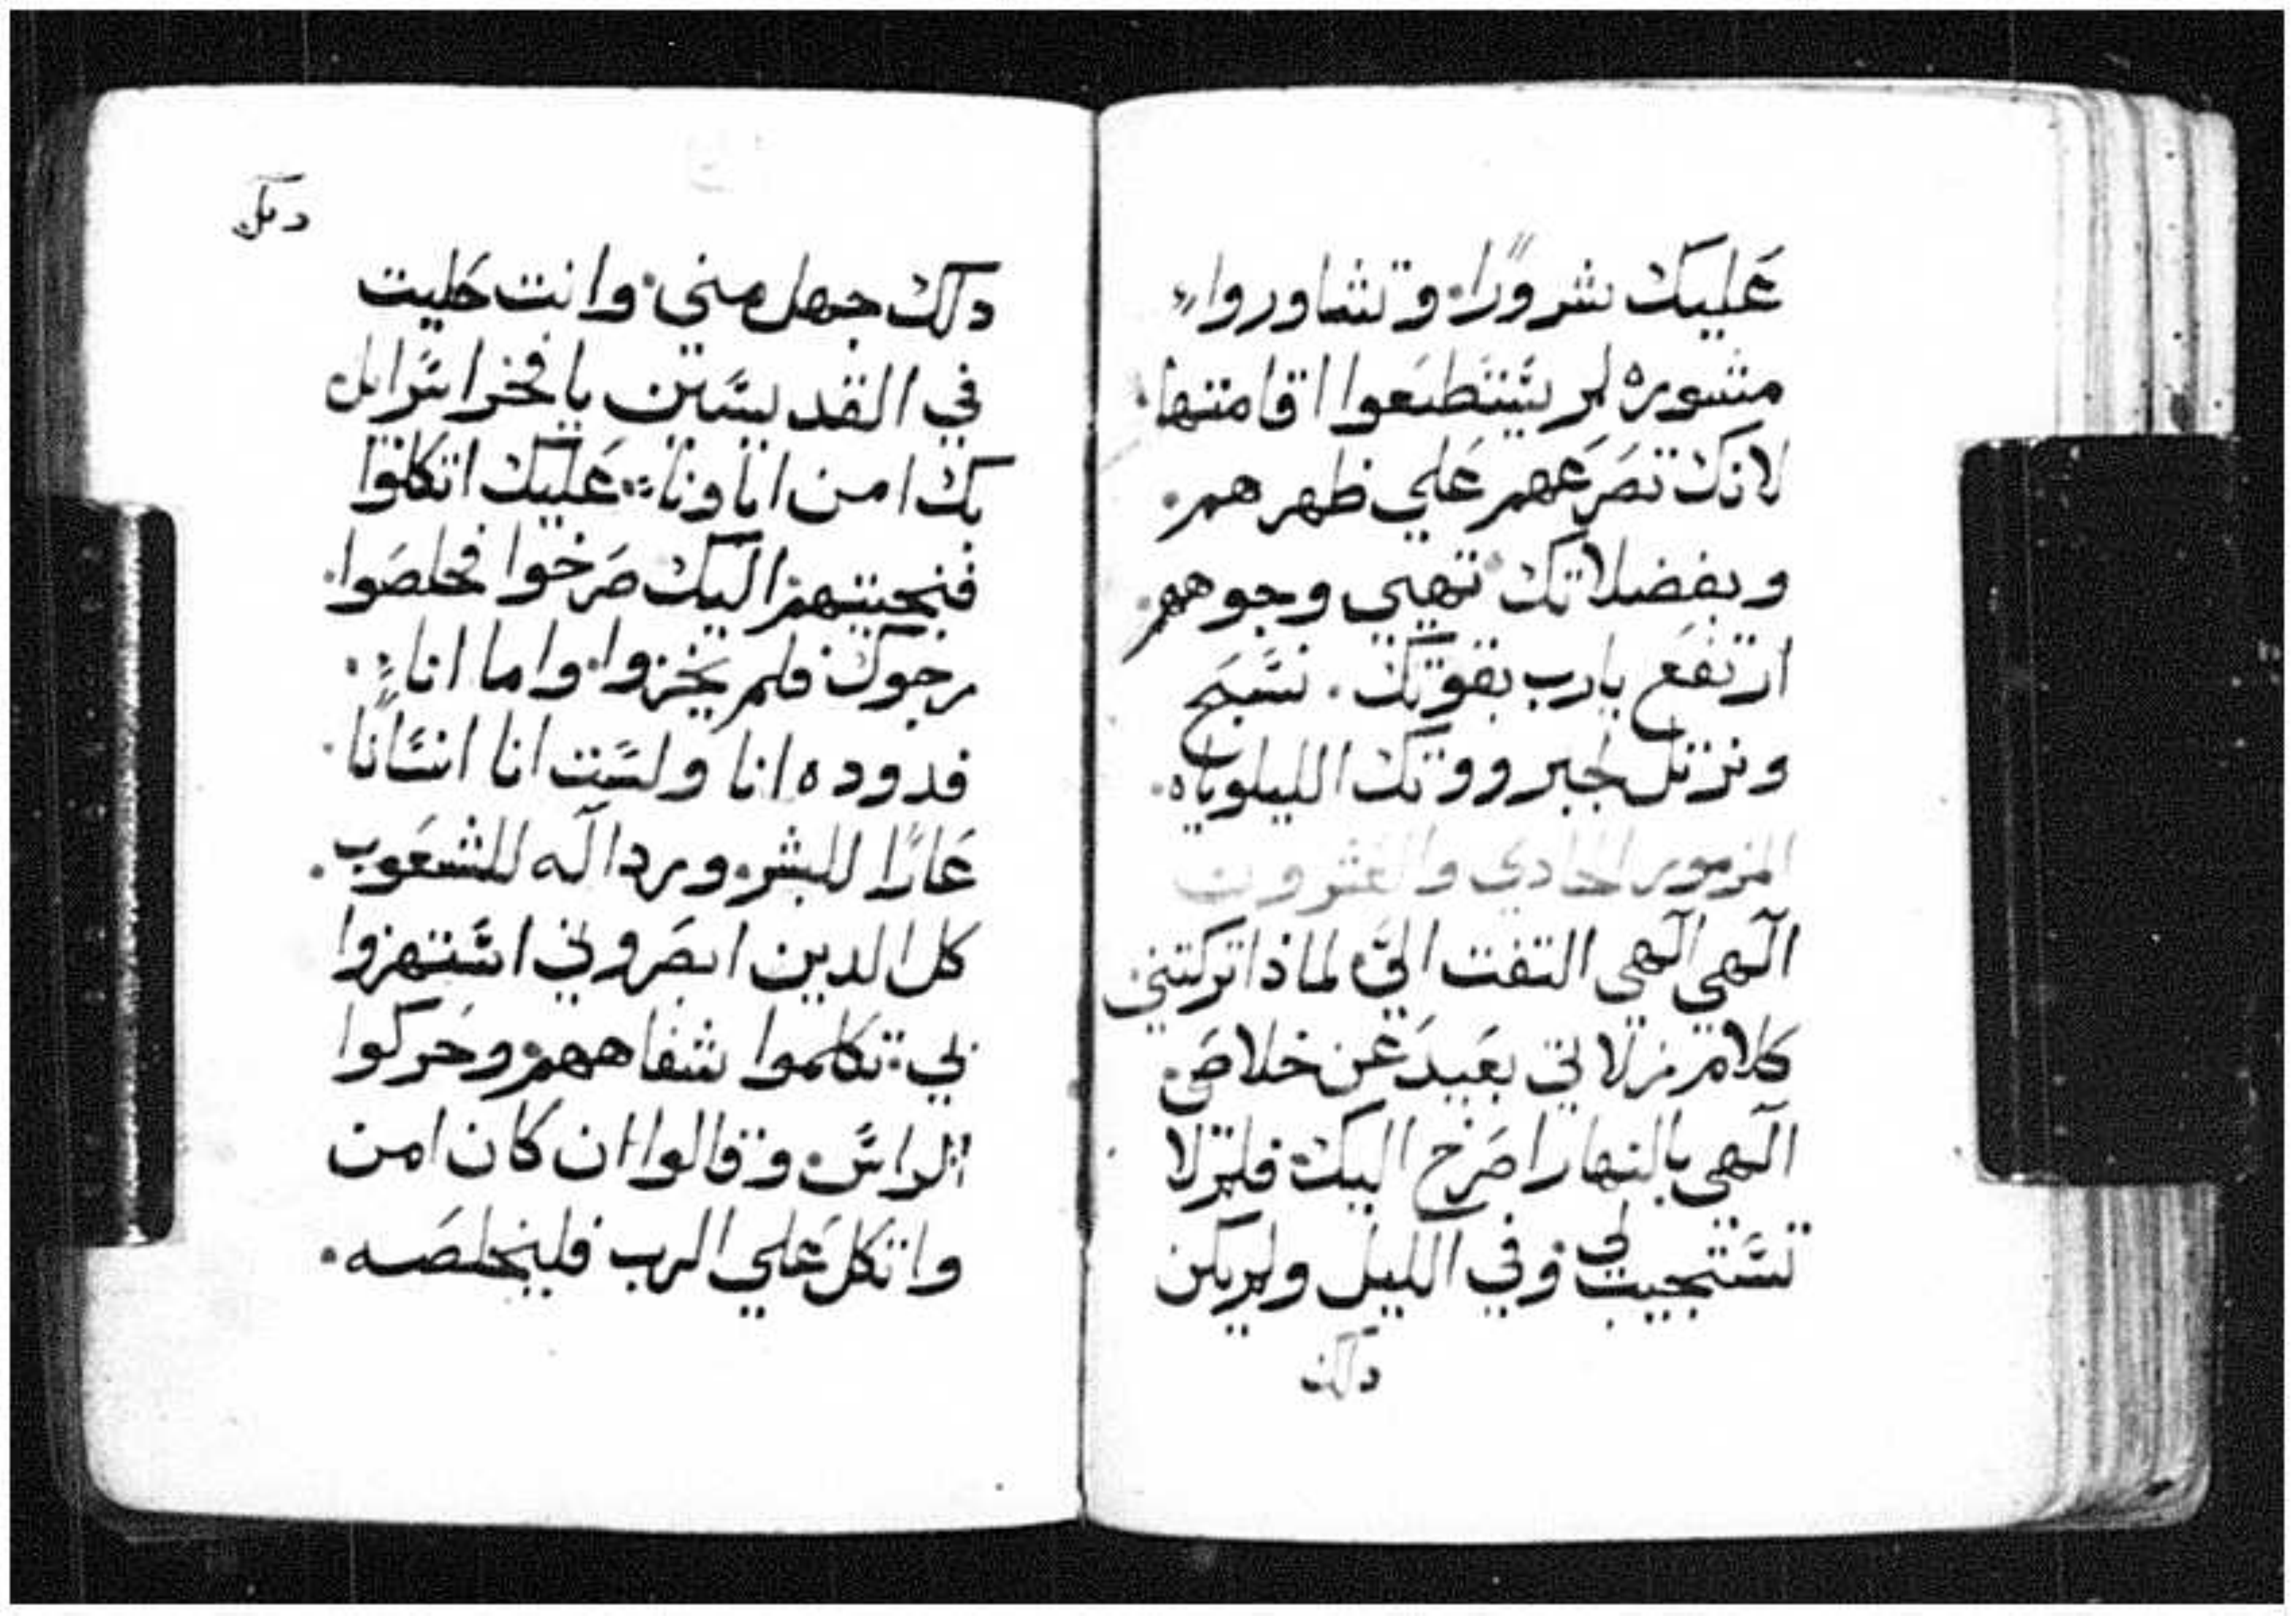 عليك شرورًا. وتشاوروا
مشوره لم يستطيعوا اقامتها.
لانك تصرعهم علي ظهرهم.
وبفضلاتك تهيي وجوههم
ارتفع يارب بقوتك. نسبح
ونرتل لجبروتك الليلوياه.
المزمور الحادي والعشرون
الهي الهي التفت اليّ لماذا تركتني
كلام زلاتي بعيد عن خلاصي.
الهي بالنهار اصرخ اليك فلم لا
تستجيب لي وفي الليل ولم يكن
دلك
دلك جهل مني. وانت حليت
في القديسين يا فخر اسراييل
بك امن اباونا عليك اتكلوا
فنجيتهم اليك صرخوا فخلصوا.
رجوك فلم يخزوا. واما انا
فدوده انا ولست انا انسانا.
عارًا للبشر. ورداله للشعوب.
كل الدين ابصروني استهزوا
بي. تكلموا بشفاههم. وحركوا
الراس. وقالوا ان كان امن
واتكل علي الرب فلينخلصه.